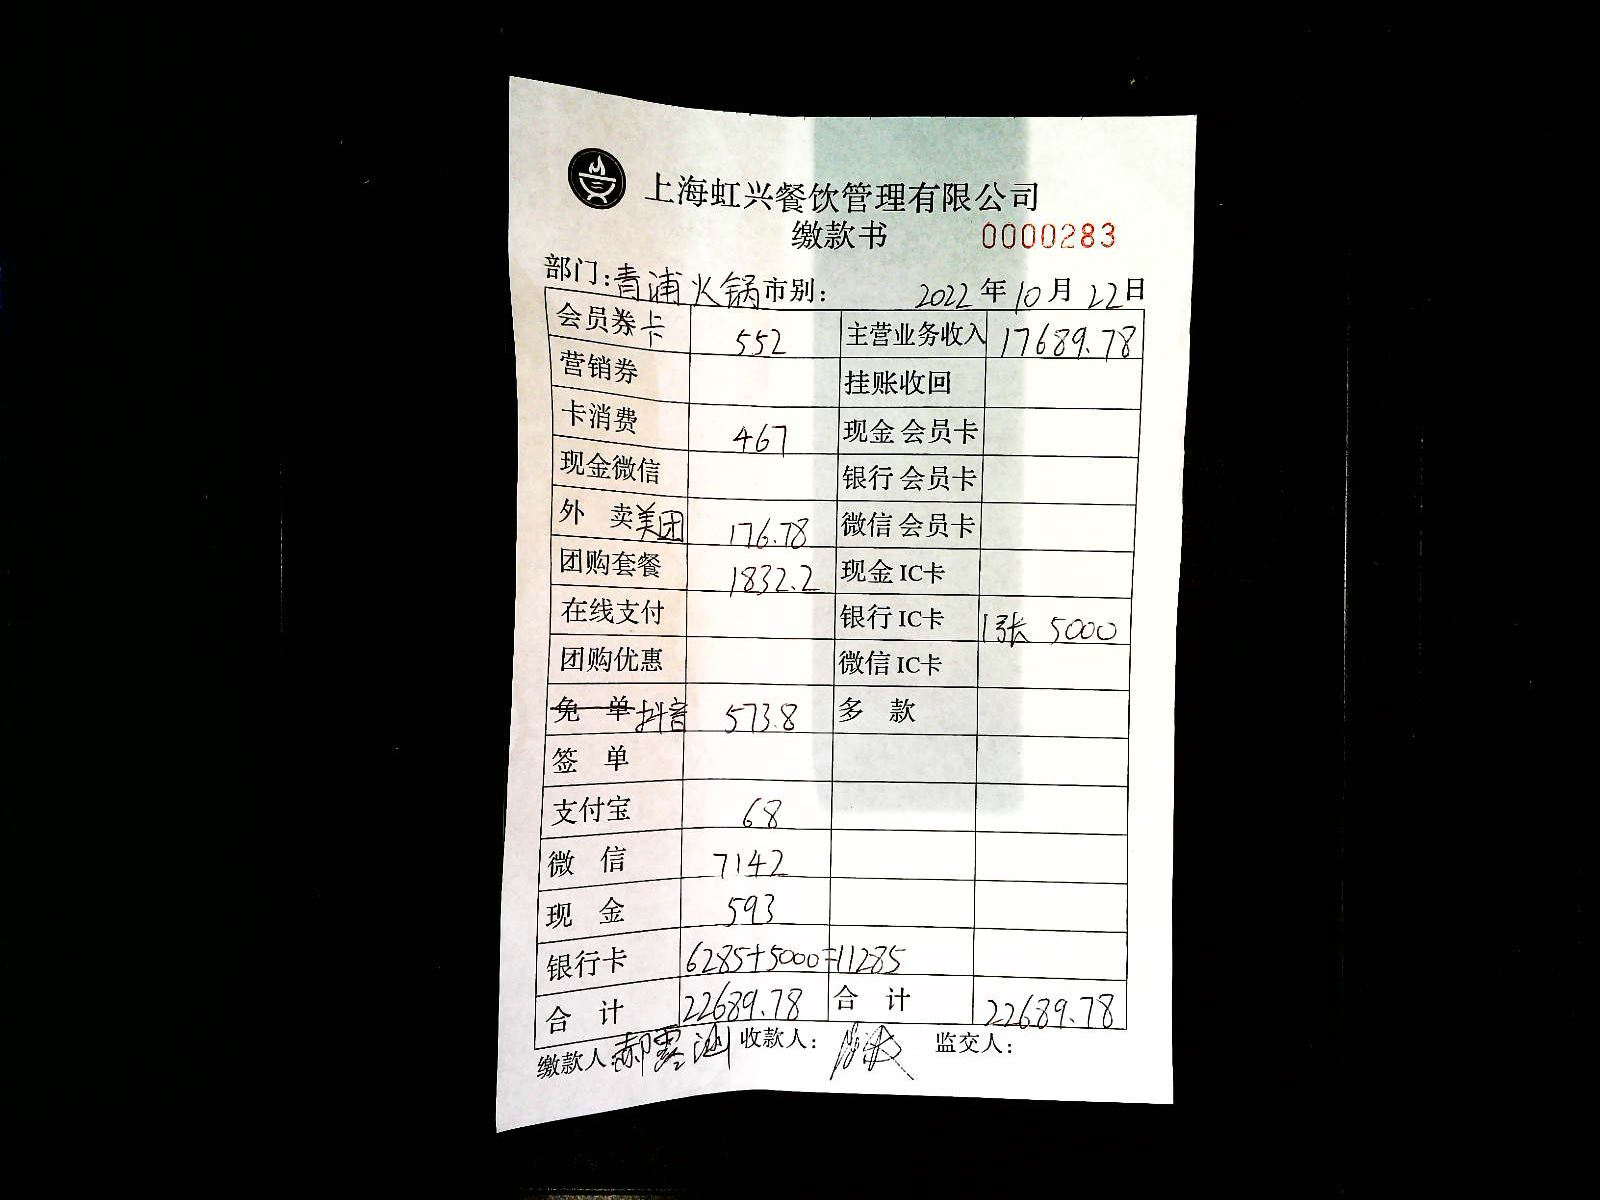 上海虹兴餐饮管理有限公司
缴款书 0000283
部门:青浦火锅 市别: 2022年10月22日
会员券卡 552 主营业务收入 17689.78
营销券 挂账收回
卡消费 467 现金 会员卡
现金微信 银行 会员卡
外 卖美团 176.78 微信 会员卡
团购套餐 1832.2 现金 IC卡
在线支付 银行 IC卡 1张 5000
团购优惠 微信 IC卡
免 单抖音 573.8 多 款
签 单
支付宝 68
微 信 7142
现 金 593
银行卡 6285+5000=11285
合 计 22689.78 合 计 22689.78
缴款人:郝 收款人: 监交人: